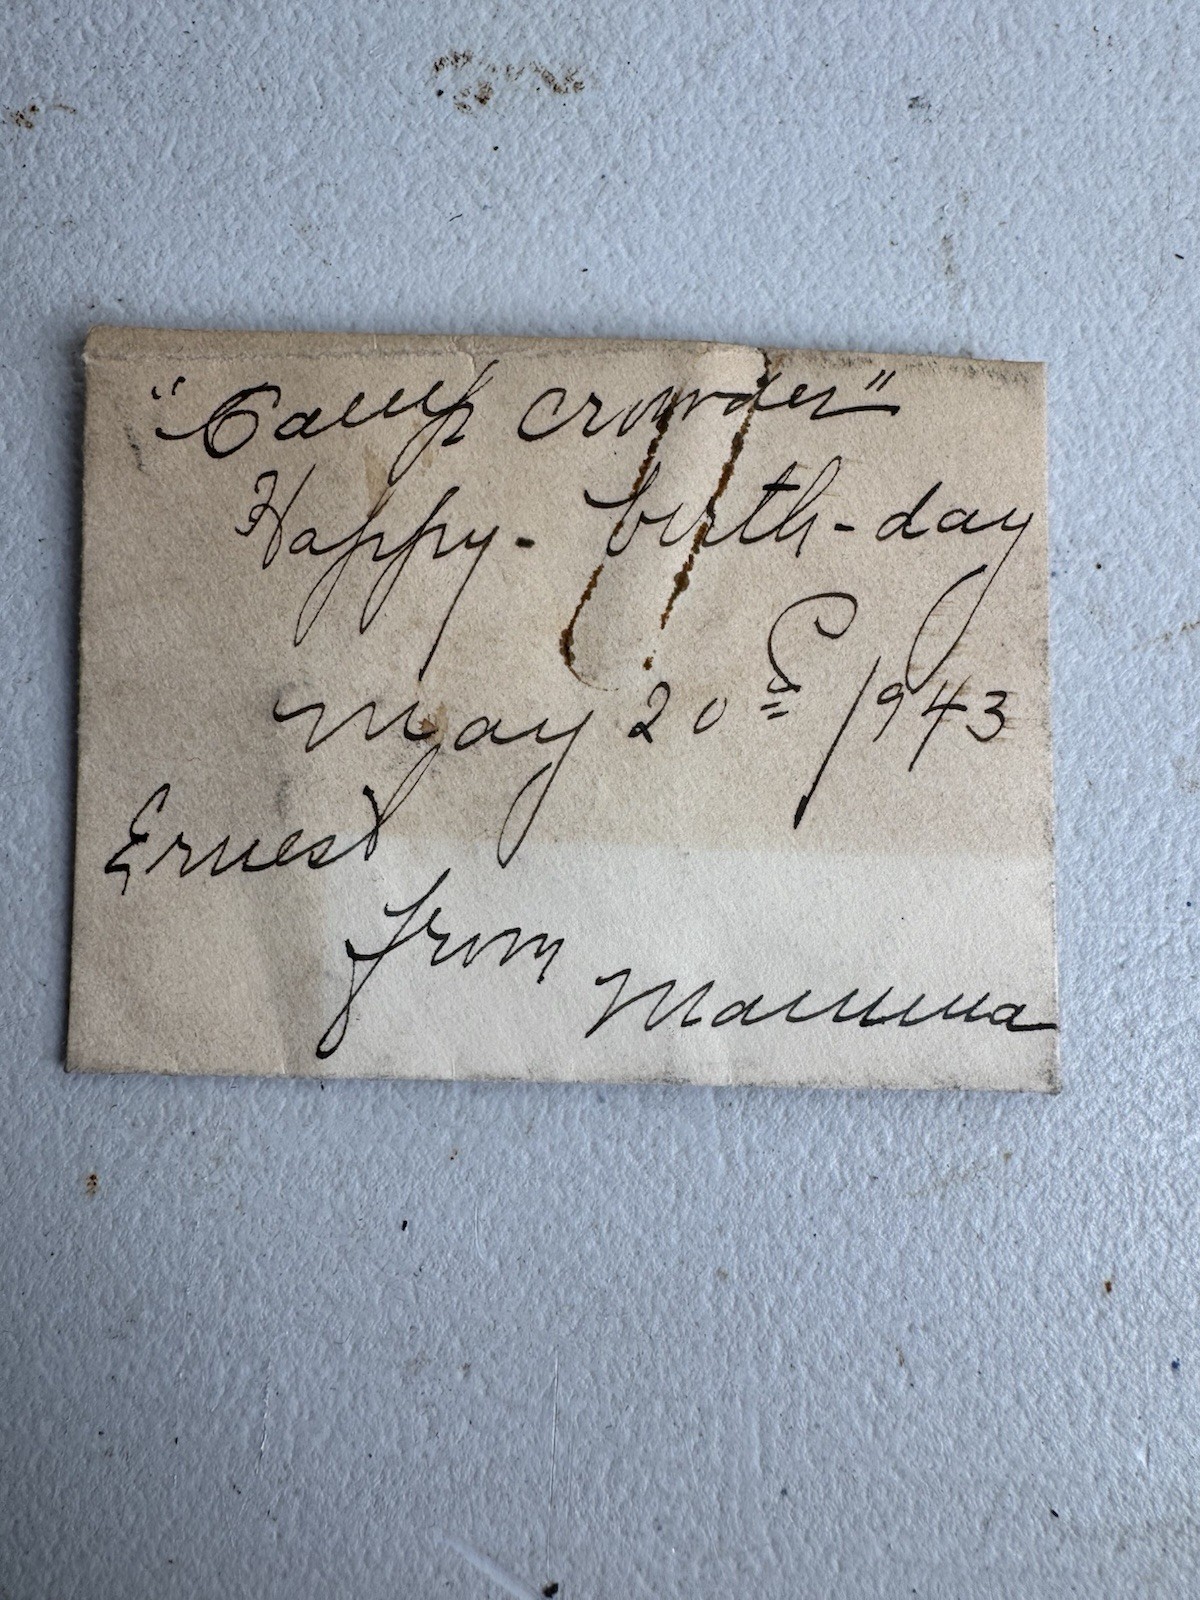 "Camp Crowder"
Happy - birth-day
May 20th 1943
Ernest
from
Mamma